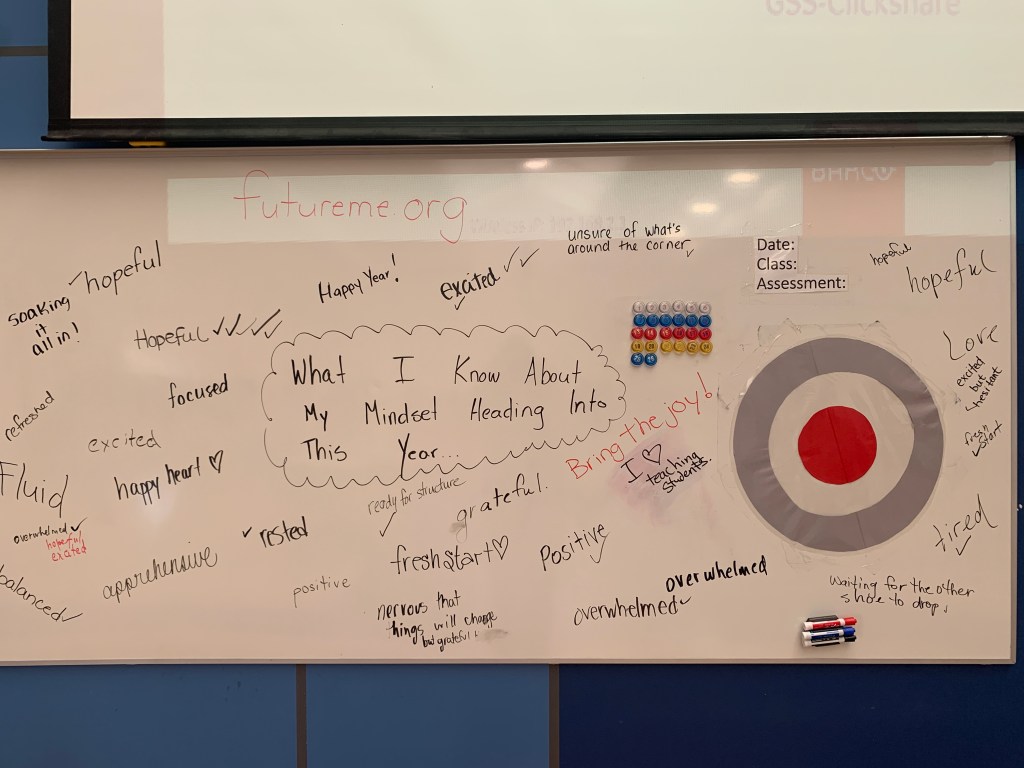 GSS-Clickshare
futureme.org
unsure of what's
around the corner
hopeful
soaking
it
all in!
Happy Year!
excited
Date:
Class:
Assessment:
hopeful
hopeful
Hopeful
What I Know About
My Mindset Heading Into
This Year...
Love
excited
but
hesitant
refreshed
focused
excited
happy heart ♡
Bring the joy!
I ♡
teaching
students.
fresh
start
Fluid
overwhelmed
hopeful
excited
ready for structure
grateful.
rested
fresh start ♡
Positive
tired
balanced
apprehensive
positive
nervous that
things will change
but grateful
overwhelmed
overwhelmed
waiting for the other
shoe to drop